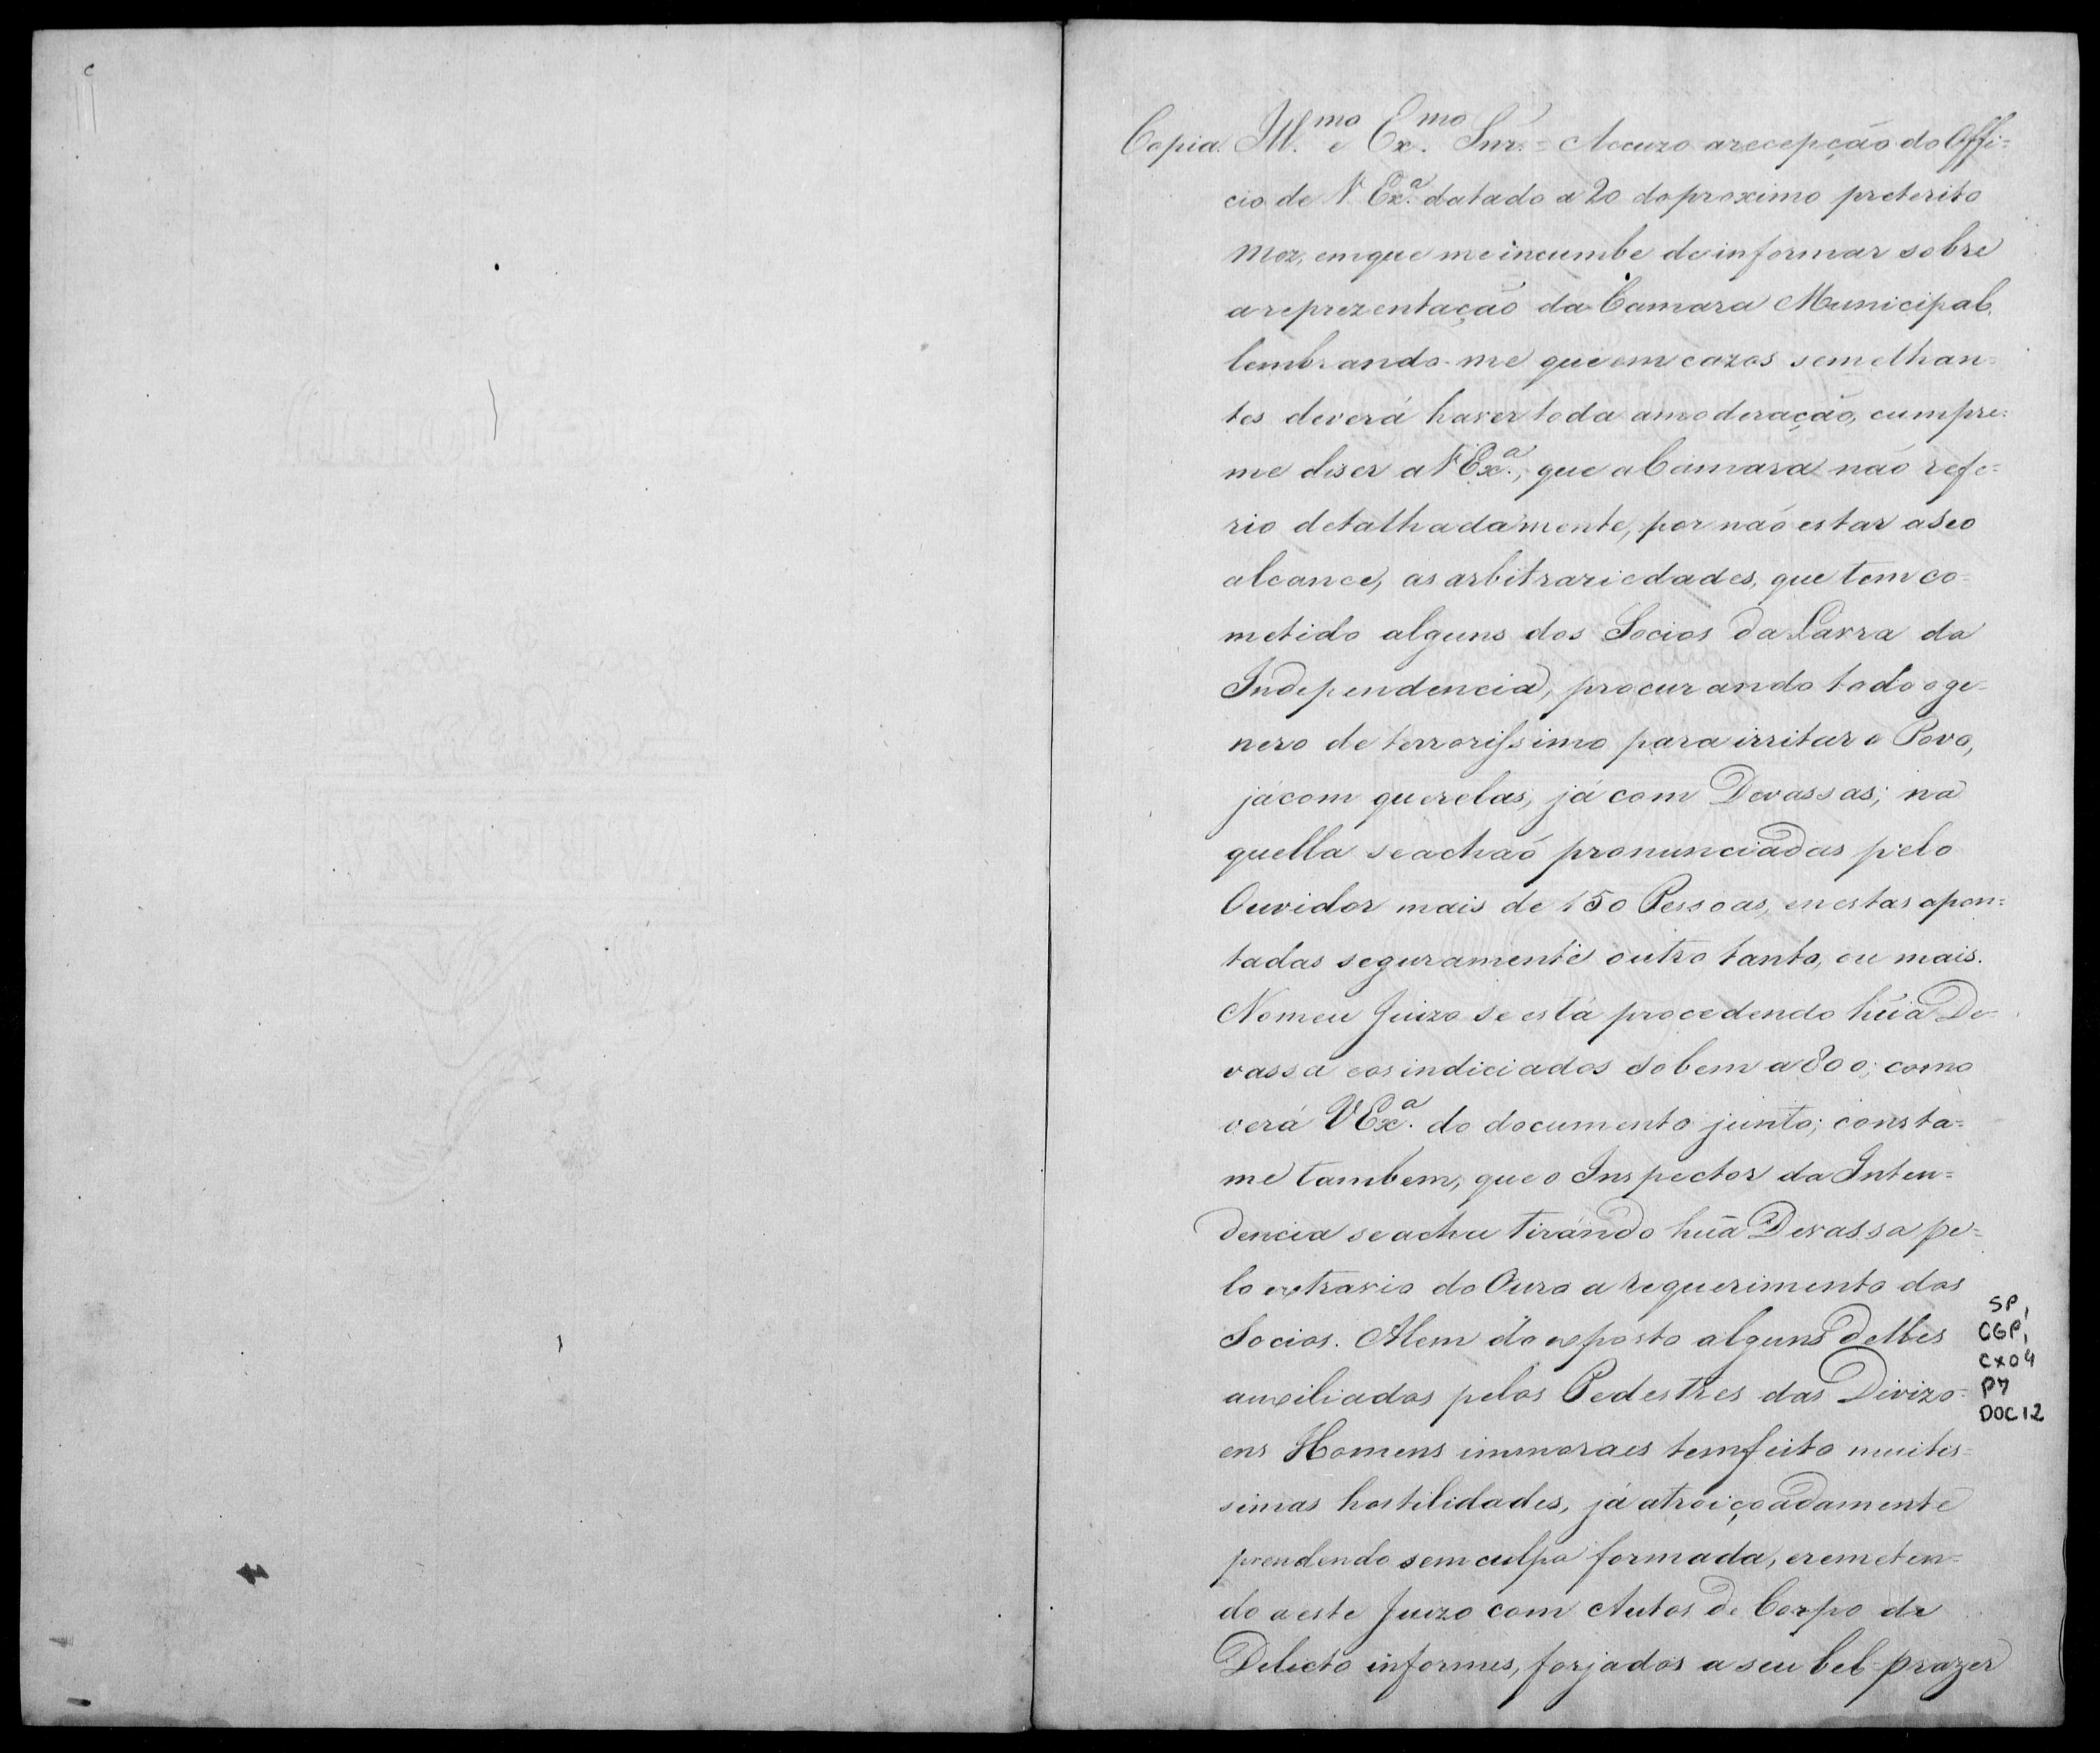 Copia. Ill.mo e Ex.mo Snr. = Accuzo arecepção do Offi=
cio de V Ex.a datado a 20 do proximo preterito
Mez, emque meincumbe deinformar sobre
areprezentação da Camara Municipal,
lembrando-me queem cazos semelhan=
tes deverá haver toda amoderação, cumpre=
me diser a VEx.a, que aCamara não refe=
rio detalhadamente, por não estar aSeo
alcance, as arbitrariedades, que tem co=
metido alguns dos Socios da Lavra da
Independencia, procurando todo oge=
nero de terrorissimo para irritar o Povo,
jácom querelas, já com Devassas; na
quella seachaõ pronunciadas pelo
Ouvidor mais de 150 Pessoas, enestas apon=
tadas seguramente outro tanto, ou mais.
Nomeu Juizo se está procedendo hũa De=
vassa eosindiciados sobem a 800; como
verá VEx.a do documento junto; consta=
me tambem, que o Inspector da Inten=
dencia seacha tirando hũa Devassa pe=
lo extravio do Ouro a requerimento dos
Socios. Alem do exposto alguns delles
auxiliados pelos Pedestres das Divizo=
ens Homens immoraes temfeito muites=
simas hostilidades, já atroiçoadamente
prendendo semculpa formada, eremeten=
do a este Juizo com Autos de Corpo de
Delicto informes, forjados a seu bel-prazer
SP,
CGP,
CX04
P7
DOC12